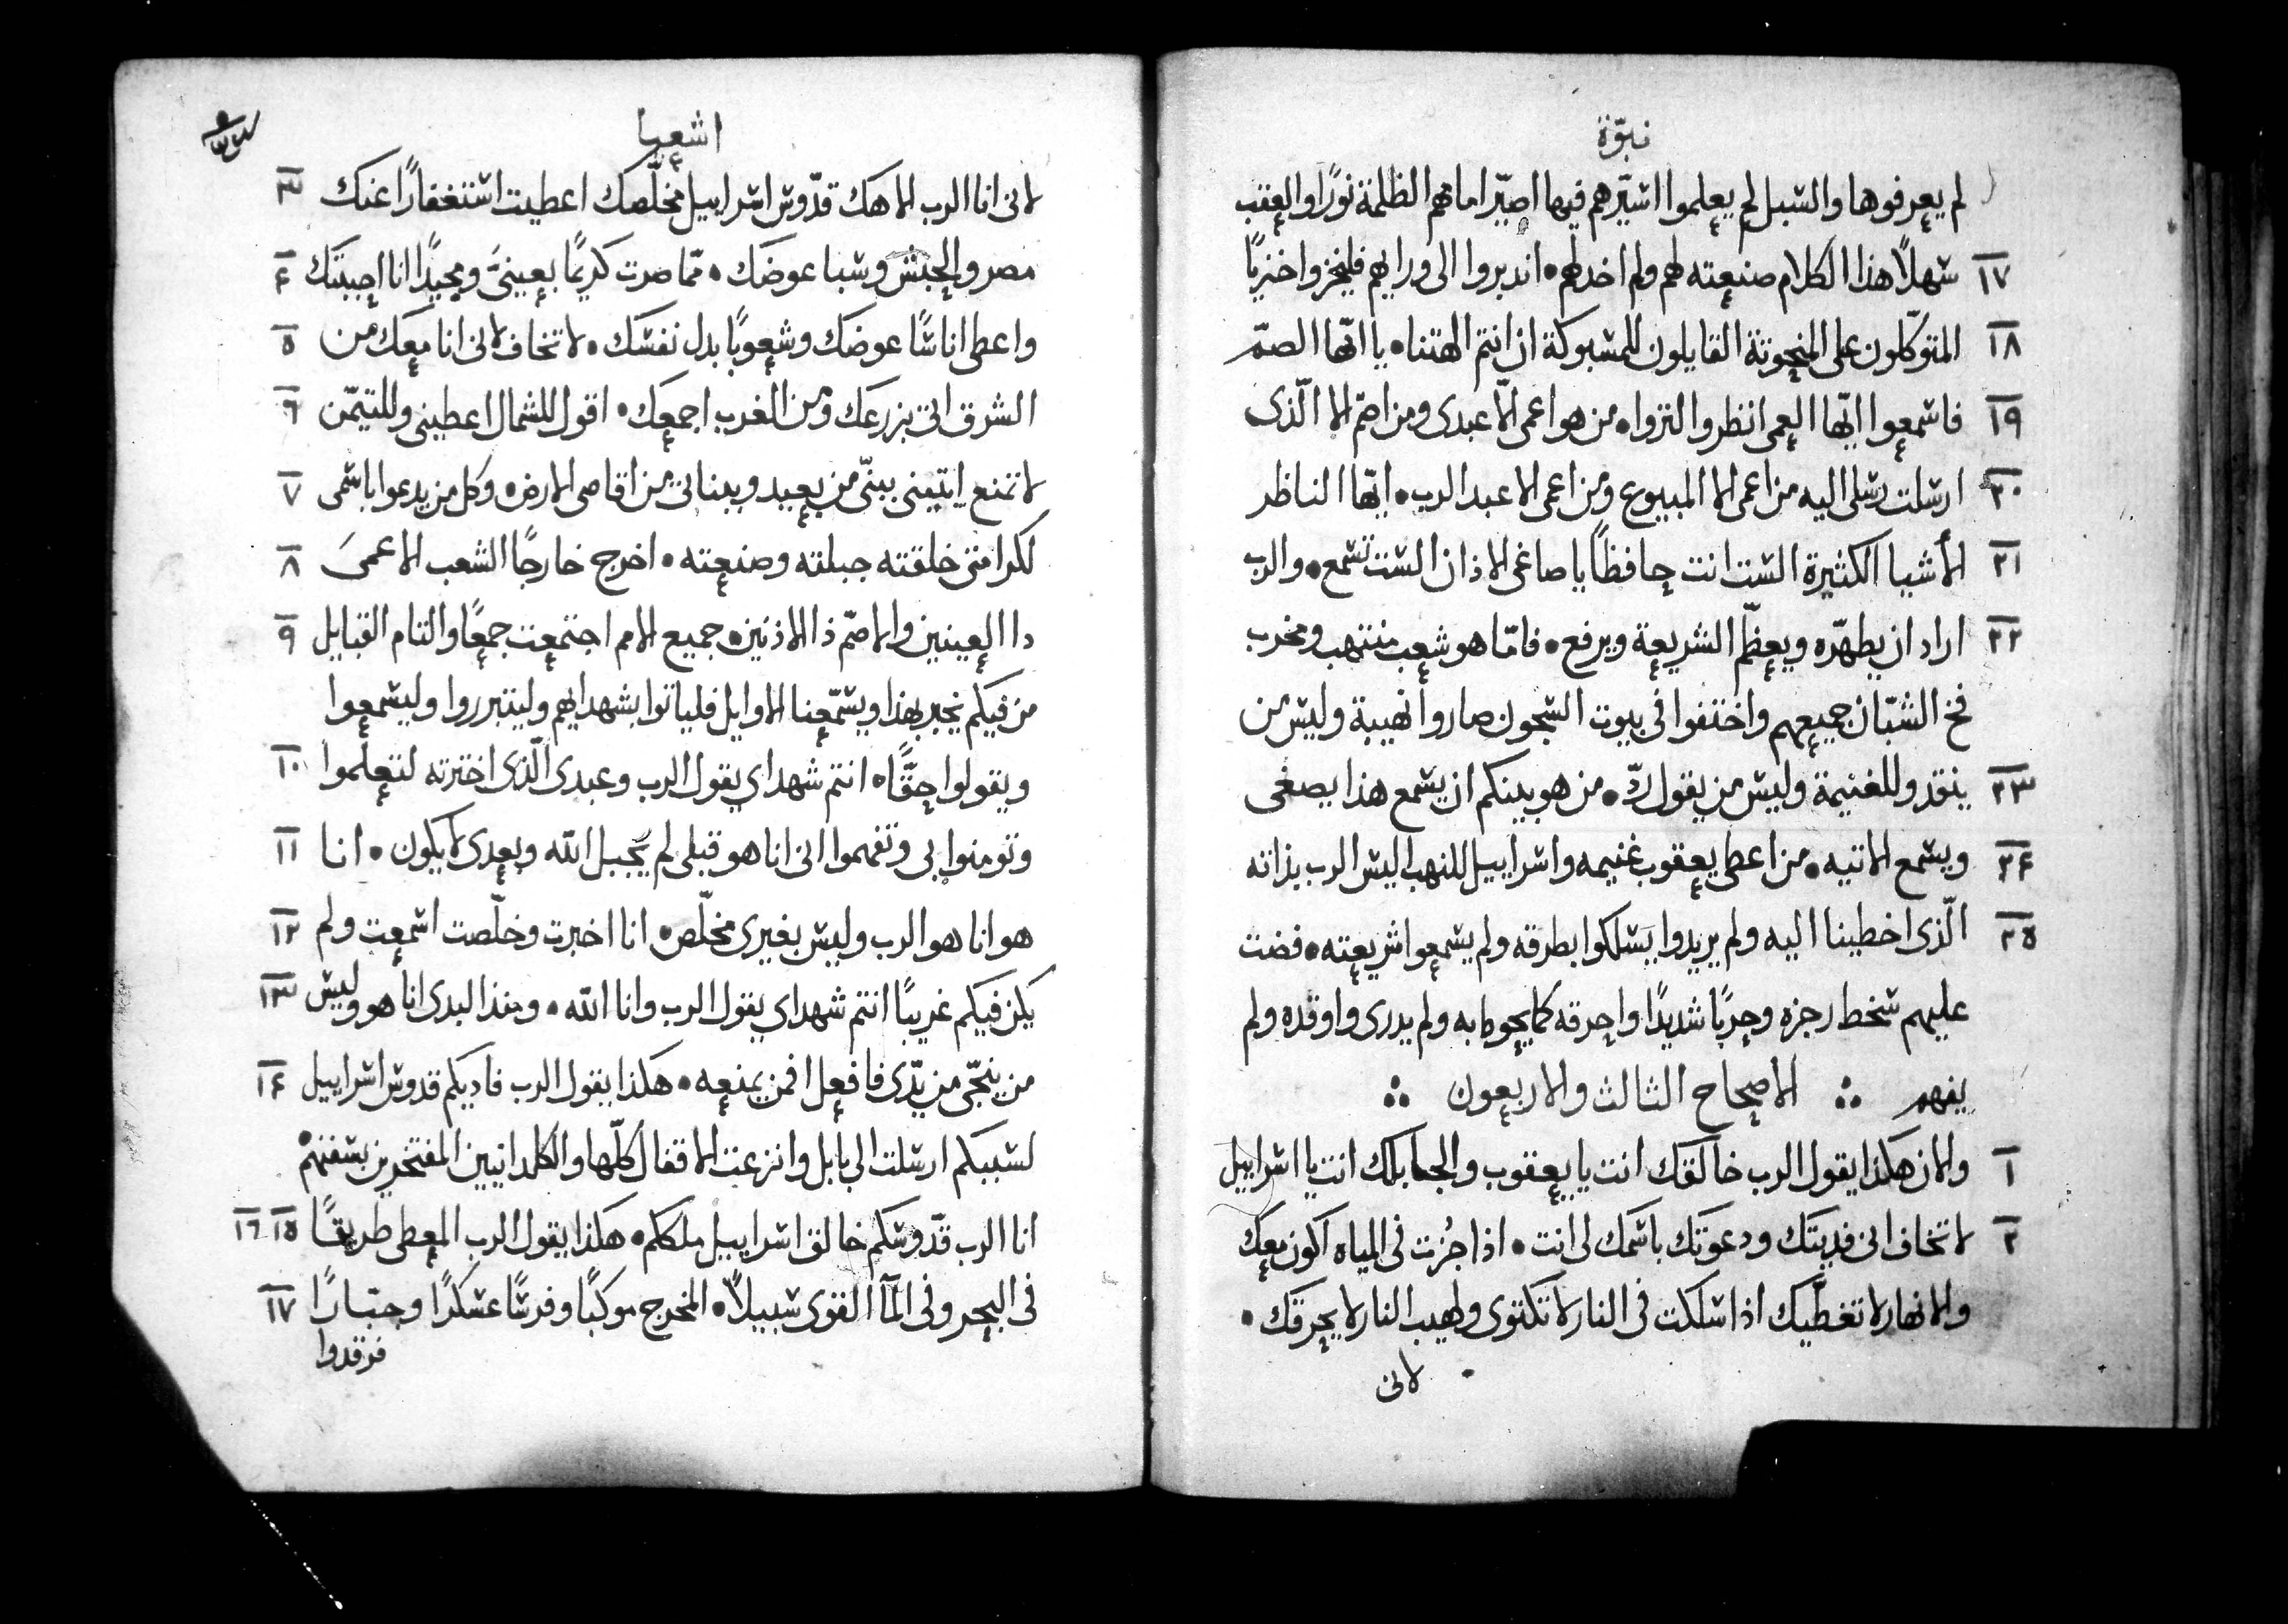 نبوّة
لم يعرفوها والسبل لم يعلموا اسيّرهم فيها اصيّر امامهم الظلمة نورًا والعقب
١٧ سهلًا هذا الكلام صنعته لهم ولم اخدلهم • اندبروا الى ورايهم فليخزوا خزيًا
١٨ المتوكّلون على المنحوتة القايلون للمسبوكة ان انتم الهتنا • يا ايّها الصمّ
١٩ فاسمعوا ايّها العمى انظروا لتروا • من هو اعمى الّا عبدى ومن اصمّ الا الّذى
٢٠ ارسلت رسلى اليه من اعمى الا المبيوع ومن اعمى الا عبد الرب • ايّها الناظر
٢١ الأشيا الكثيرة الست انت حافظًا يا صاغى الاذان الست تسمع • والرب
٢٢ اراد ان يطهّره ويعظّم الشريعة ويرفع • فامّا هو شعب منتهب ومخرب
فخ الشبّان جميعهم واختفوا فى بيوت السجون صاروا نهيبة وليس من
٢٣ ينقد وللغنيمة وليس من يقول ردّ • من هو بينكم ان يسمع هذا يصغى
٢٤ ويسمع الاتيه • من اعطى يعقوب غنيمه واسراييل للنهب اليس الرب بذاته
٢٥ الّذى اخطينا اليه ولم يريدوا يسلكوا بطرقه ولم يسمعوا شريعته • فضت
عليهم سخط رجزه وحربًا شديدًا واحرقه كما يحوط به ولم يدرى واوقده ولم
يفهم ∴ الاصحاح الثالث والاربعون ∴
١ والان هكذا يقول الرب خالقك انت يا يعقوب والجابلك انت يا اسراييل
٢ لا تخاف انى فديتك ودعوتك باسمك لى انت • اذا جُزت فى المياه اكون معك
والانهار لا تغطّيك اذا سلكت فى النار لا تكتوى ولهيب النار لا يحرقك •
لانى
اشعيا
لانى انا الرب الاهك قدّوس اسراييل مخلّصك اعطيت استغفارًا عنك ٣
مصر والحبش وسبا عوضك • ممّا صرت كريمًا بعينىَّ ومجيدًا انا احببتك ٤
واعطى اناسًا عوضك وشعوبًا بدل نفسك • لا تخاف لانى انا معك من ٥
الشرق اتى بزرعك ومن الغرب اجمعك • اقول للشمال اعطينى وللتيمّن ٦
لا تمنع ايتينى ببنىّ من بعيد وببناتى من اقاصى الارض • وكل من يدعوا باسمى ٧
لكرامتى خلقته جبلته وصنعته • اخرج خارجًا الشعب الاعمىَ ٨
دا العينين والاصمّ ذا الاذنين • جميع الامم اجتمعت جمعًا والتام القبايل ٩
من فيكم يخبر بهذا ويسمّعنا الاوايل فلياتوا بشهدايهم وليتبرروا وليسمعوا
ويقولوا حقًّا • انتم شهداي يقول الرب وعبدى الّذى اخترته لتعلموا ١٠
وتومنوا بى وتفهموا انى انا هو قبلى لم يجبل الله وبعدى لا يكون • انا ١١
هو انا هو الرب وليس بغيرى مخلّص • انا اخبرت وخلّصت اسمعت ولم ١٢
يكن فيكم غريبًا انتم شهداي يقول الرب وانا الله • ومنذ البدى انا هو وليس ١٣
من ينجّى من يدّى فافعل فمن يمنعه • هكذا يقول الرب فاديكم قدوس اسراييل ١٤
لسببكم ارسلت الى بابل وانزعت الاقفال كلّها والكلدانيين المفتخرين بسفنهم
انا الرب قدّوسكم خالق اسراييل ملككم • هكذا يقول الرب المعطى طريقًا ١٥ ١٦
فى البحر وفى المآ القوى سبيلًا • المخرج موكبًا وفرسًا عسكرًا وجبّارًا ١٧
فرقدوا